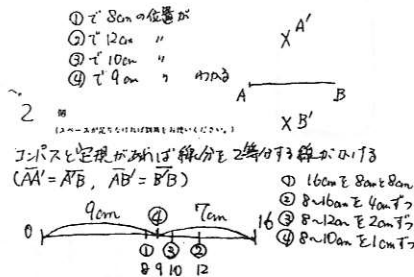 ① で 8cmの位置が
② で 12cm 〃
③ で 10cm 〃
④ で 9cm 〃 わかる
A'
A B
B'
2
(スペースが足りなければ裏面をお使いください。)
コンパスと定規があれば線分を2等分する線がひける
(AA' = A'B, AB' = B'B)
① 16cmを8cmと8cm
② 8~16cmを4cmずつ
③ 8~12cmを2cmずつ
④ 8~10cmを1cmずつ
9cm ④ 7cm
0 16
① ③ ②
8 9 10 12